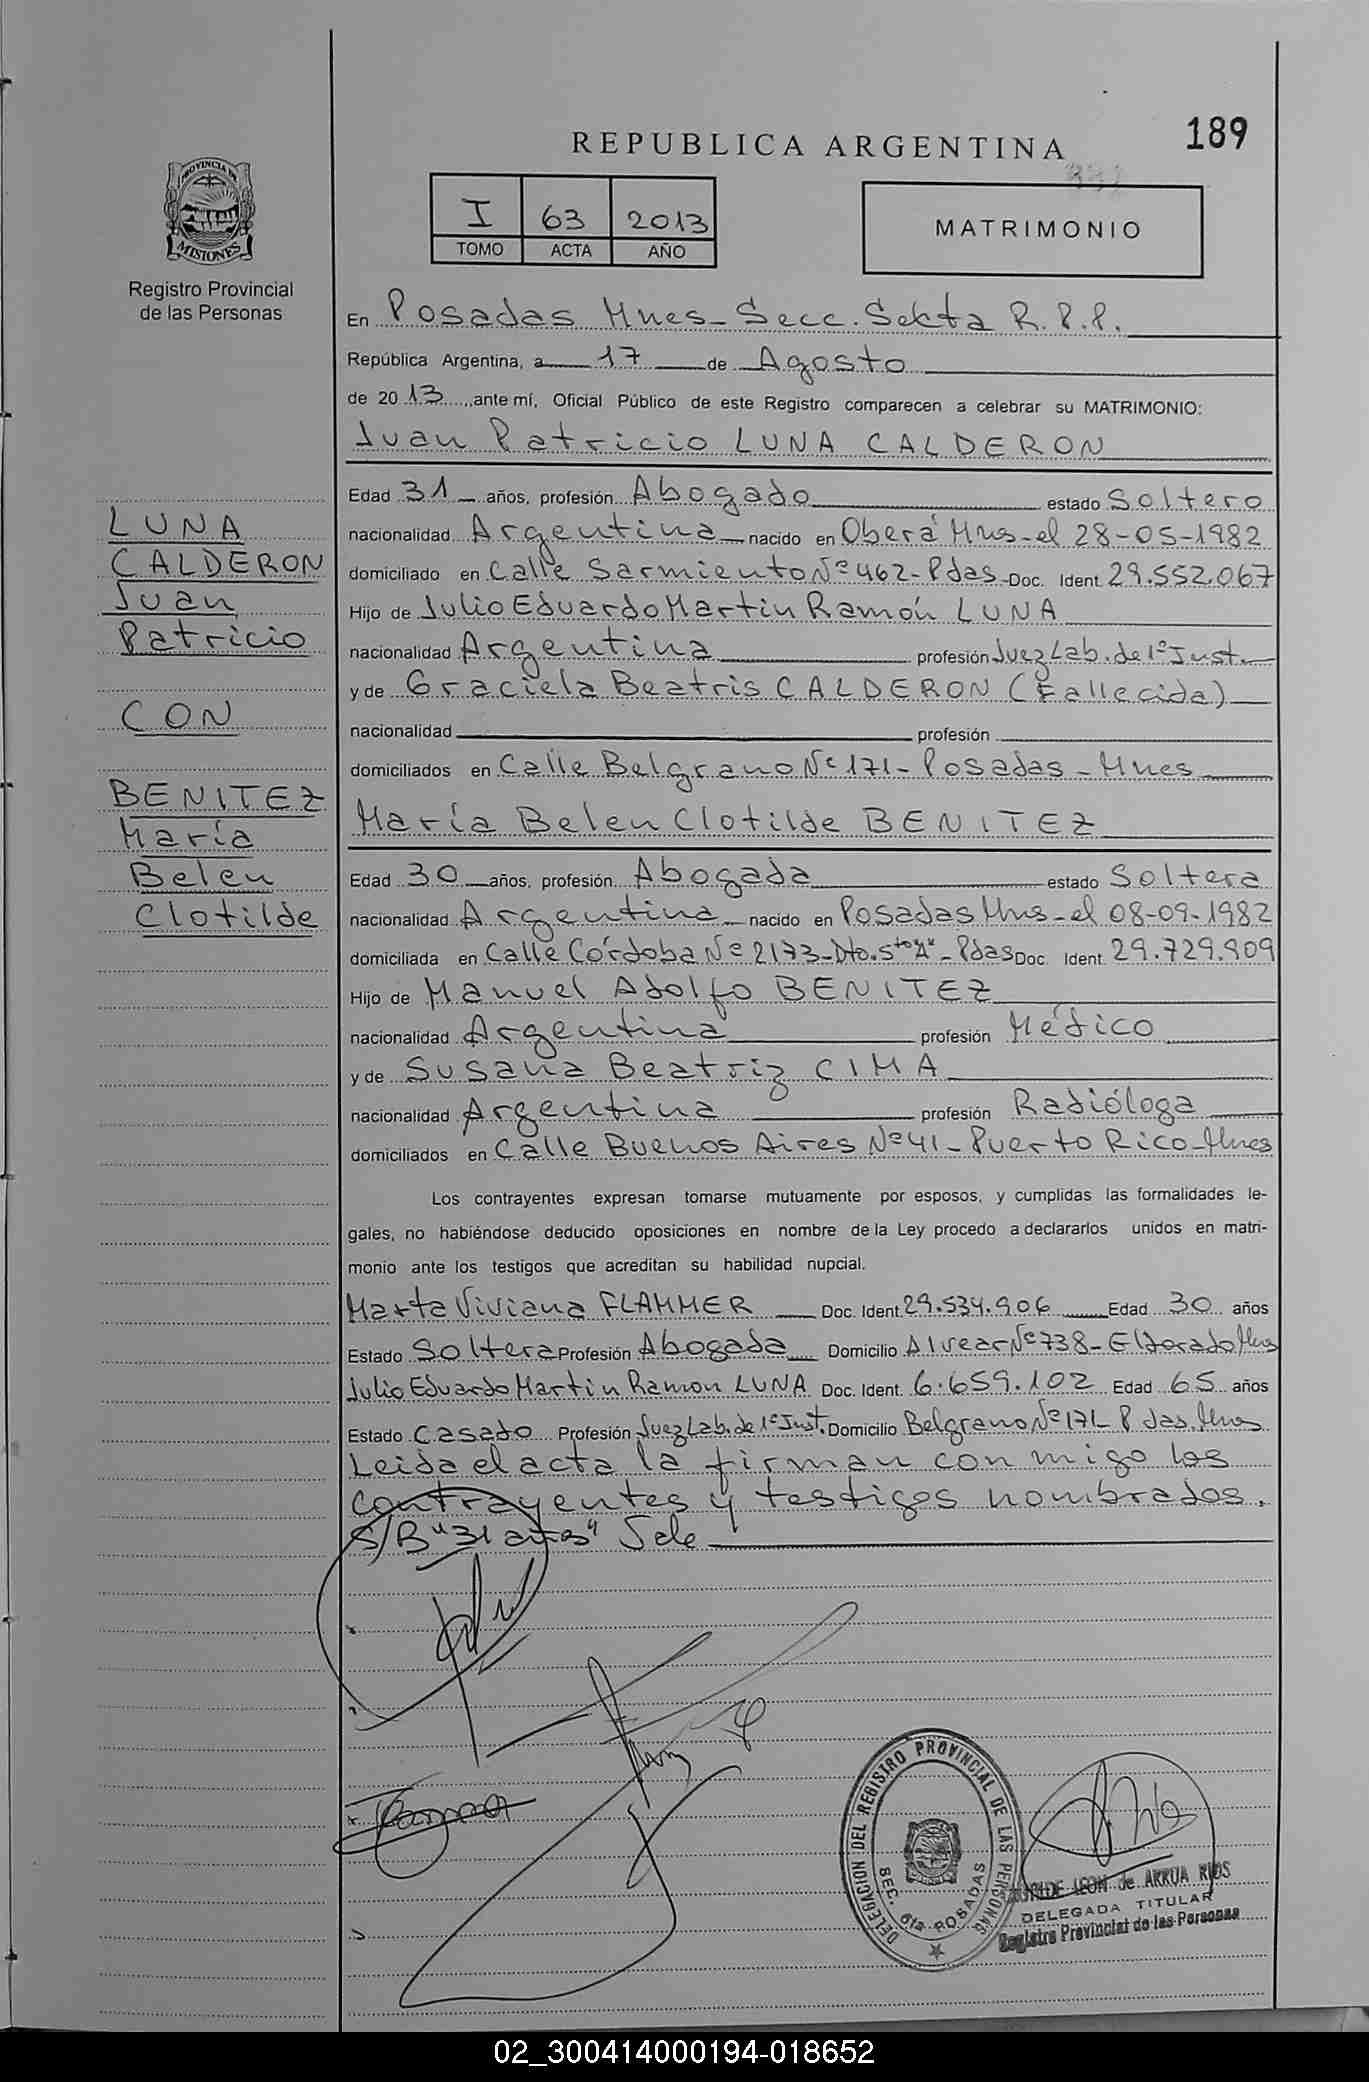 189
REPUBLICA ARGENTINA
PROVINCIA DE
MISIONES
Registro Provincial
de las Personas
I 63 2013
TOMO ACTA AÑO
MATRIMONIO
En Posadas Mnes - Secc. Sexta R.P.P.
República Argentina, a 17 de Agosto
de 2013, ante mí, Oficial Público de este Registro comparecen a celebrar su MATRIMONIO:
Juan Patricio LUNA CALDERON
Edad 31 años, profesión Abogado estado Soltero
nacionalidad Argentina nacido en Oberá Mns - el 28-05-1982
domiciliado en Calle Sarmiento Nº 462 - Pdas - Doc. Ident. 29.552.067
Hijo de Julio Eduardo Martin Ramón LUNA
nacionalidad Argentina profesión Juez Lab. de 1º Inst.
y de Graciela Beatris CALDERON (Fallecida)
nacionalidad profesión
domiciliados en Calle Belgrano Nº 171 - Posadas - Mnes
María Belen Clotilde BENITEZ
Edad 30 años, profesión Abogada estado Soltera
nacionalidad Argentina nacido en Posadas Mns - el 08-09-1982
domiciliada en Calle Córdoba Nº 2173 - Dto. 5to "A" - Pdas Doc. Ident. 29.729.909
Hijo de Manuel Adolfo BENITEZ
nacionalidad Argentina profesión Médico
y de Susana Beatriz CIMA
nacionalidad Argentina profesión Radióloga
domiciliados en Calle Buenos Aires Nº 41 - Puerto Rico - Mnes
Los contrayentes expresan tomarse mutuamente por esposos, y cumplidas las formalidades le-
gales, no habiéndose deducido oposiciones en nombre de la Ley procedo a declararlos unidos en matri-
monio ante los testigos que acreditan su habilidad nupcial.
Marta Viviana FLAMMER Doc. Ident. 29.534.906 Edad 30 años
Estado Soltera Profesión Abogada Domicilio Alvear Nº 738 - Eldorado Mns
Julio Eduardo Martin Ramon LUNA Doc. Ident. 6.659.102 Edad 65 años
Estado Casado Profesión Juez Lab. de 1º Inst. Domicilio Belgrano Nº 171 - Pdas. Mnes
Leida el acta la firman con migo los
contrayentes y testigos nombrados.
S/B "31 años" Vale
LUNA
CALDERON
Juan
Patricio
CON
BENITEZ
María
Belen
Clotilde
DELEGACION DEL REGISTRO PROVINCIAL DE LAS PERSONAS
SEC. 6ta POSADAS
LEON de ARRUA RIOS
DELEGADA TITULAR
Registro Provincial de las Personas
02_300414000194-018652